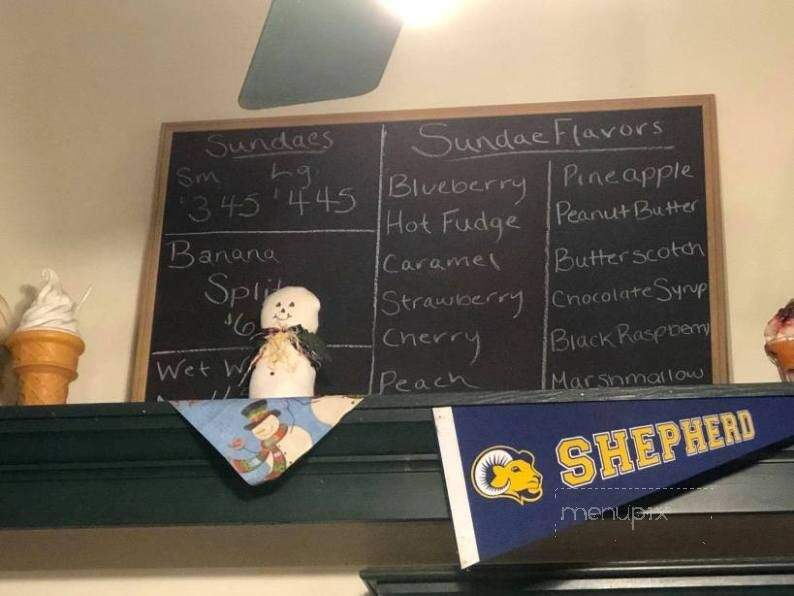 Sundaes
Sm Lg
$345 $445
Banana
Split
$6
Wet
Sundae Flavors
Blueberry
Hot Fudge
Caramel
Strawberry
Cherry
Peach
Pineapple
Peanut Butter
Butterscotch
Chocolate Syrup
Black Raspberry
Marshmallow
SHEPHERD
menupix